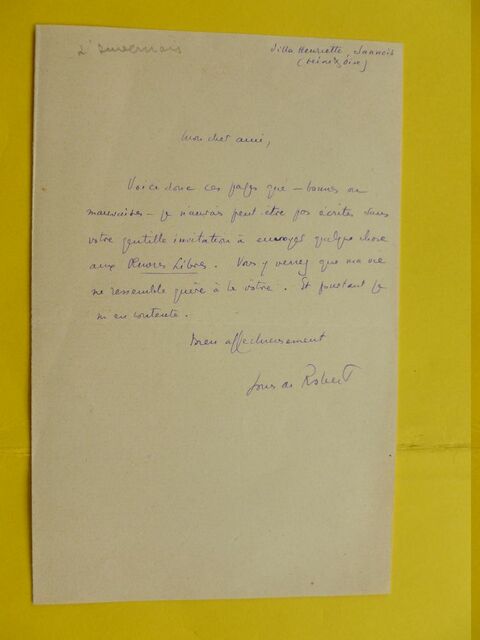 Villa Henriette, Sannois
(Seine & Oise)
Mon cher ami,
Voici donc ces pages que – bonnes ou
mauvaises – je n'aurais peut-être pas écrites sans
votre gentille invitation à envoyer quelque chose
aux Œuvres Libres. Vous y verrez que ma vie
ne ressemble guère à la vôtre. Et pourtant je
m'en contente.
Bien affectueusement
Louis de Robert